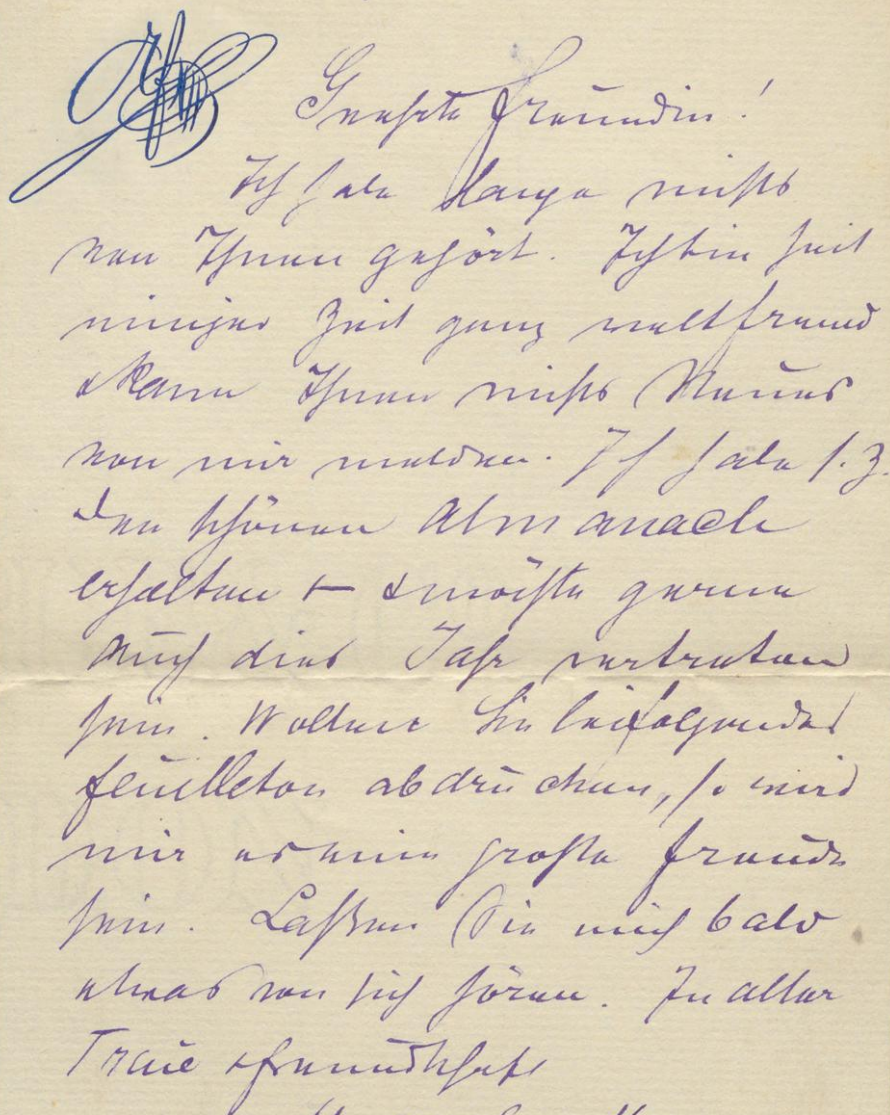 Geehrte Freundin!
Ich habe lange nichts
von Ihnen gehört. Ich bin seit
einiger Zeit ganz weltfremd
& kann Ihnen nichts Neues
von mir melden. Ich habe s. Z.
den schönen Almanach
erhalten & möchte gerne
auch dies Jahr vertreten
sein. Wollen Sie beifolgendes
Feuilleton abdrucken, so wird
mir es eine große Freude
sein. Laßen Sie mich bald
etwas von sich hören. In alter
Treue & Freundschaft